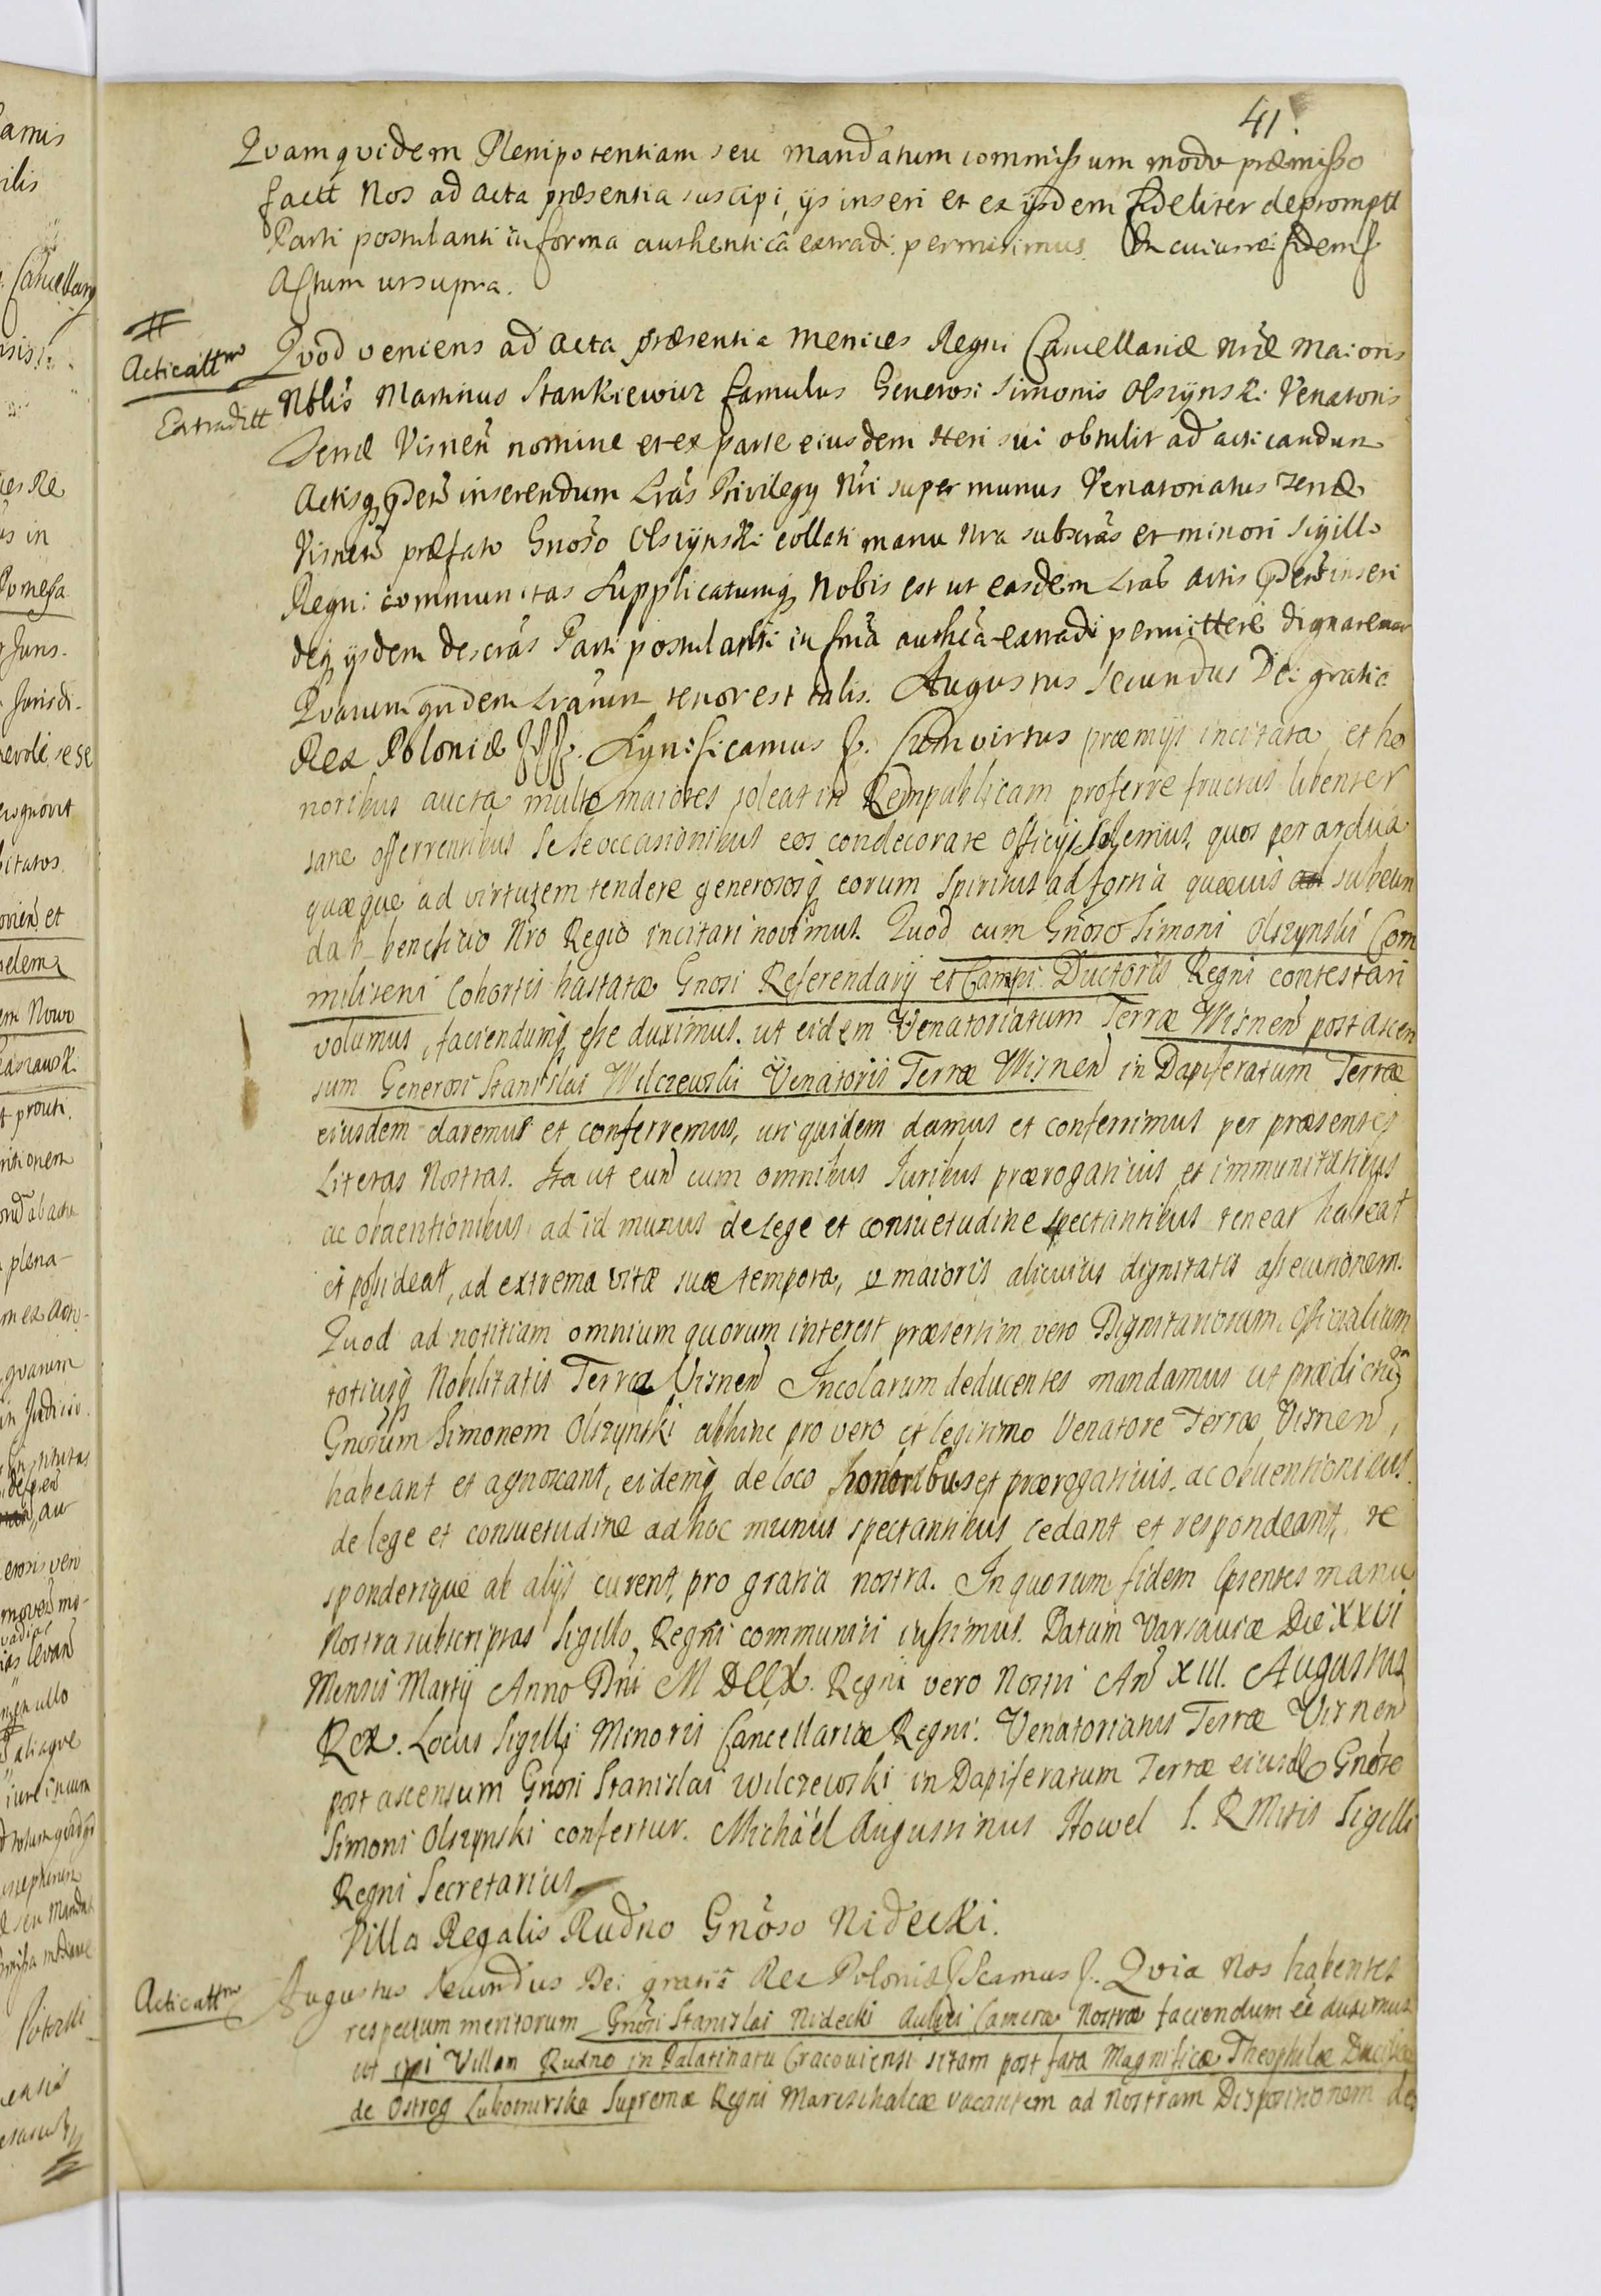 41.
Quamquidem Plenipotentiam seu mandatum commissum modo præmisso
factt Nos ad acta præsentia suscipi, ijs inseri et ex ijsdem fideliter depromptt
Parti postulanti in forma authenticâ extradi permisimus. In cuius rei fidem
Actum ut supra.
Acticattm
Extraditt
Quod veniens ad acta præsentia Metrices Regni Cancellariæ Nræ Maioris
Nblis Martinus Stankiewicz famulus Generosi Simonis Olszynski Venatoris
Terræ Visnen nomine et ex parte eiusdem Heri sui obtulit ad acticandum
Actisq pntibus inserendum Lras Privilegij Nri super munus Venatoriatus Terræ
Visnen præfato Gnoso Olszynski collati manu Nra subscras et minori Sigillo
Regni communitas Supplicatumq Nobis est ut easdem Lras Actis pntibus inseri
deq ijsdem descras Parti postulanti in frma authca extradi permittere dignaremur
Quarumquidem Lrarum tenor est talis. Augustus Secundus Dei gratia
Rex Poloniæ Significamus Cum virtus præmijs incitata et ho
noribus aucta multo maiores soleat in Rempublicam proferre fructus libenter
sane offerrentibus Se se occasionibus eos condecorare Officijs Solemus, quos per ardua
quæque ad virtutem tendere generososq eorum Spiritus ad fortia quævis subeun
da beneficio Nro Regio incitari novimus. Quod cum Gnoso Simoni Olszynski Com
militeni Cohortis hastatæ Gnosi Referendarij et Campi Ductoris Regni contestari
volumus, faciendumq esse duximus. ut eidem Venatoriatum Terræ Wisnen post ascen
sum Generosi Stanislai Wilczewski Venatoris Terræ Wisnen in Dapiferatum Terræ
eiusdem daremus et conferremus, uti quidem damus et conferrimus per præsentes
Literas Nostras. Ita ut eund cum omnibus Iuribus prærogativis et immunitatibus
ac obventionibus ad id munus de lege et consuetudine spectantibus teneat habeat
et possideat, ad extrema vitæ suæ tempora, v maioris alicuius dignitatis assecutionem.
Quod ad notitiam omnium quorum interest præsertim vero Dignitariorum Officialium
totiusq Nobilitatis Terræ Visnen Incolarum deducentes mandamus ut prædictum
Gnosum Simonem Olszynski abhinc pro vero et legitimo Venatore Terræ Visnen,
habeant et agnoscant, eidemq de loco honoribus et prærogativis, ac obventionibus
de lege et consuetudine ad hoc munus spectantibus cedant et respondeant, re
sponderique ab alijs curent, pro gratia nostra. In quorum fidem psentes manu
Nostra subscriptas Sigillo Regni communiri iussimus. Datum Varsaviæ Die XXVI
Mensis Martij Anno Dni M DCCX. Regni vero Nostri An XIII. Augustus
Rex. Locus Sigilli Minoris Cancellariæ Regni. Venatoriatus Terræ Visnen
post ascensum Gnosi Stanislai Wilczewski in Dapiferatum Terræ eiusd Gnoso
Simoni Olszynski confertur. Michaël Augustinus Howel S. R Mttis Sigilli
Regni Secretarius
Villa Regalis Rudno Gnoso Nidecki.
Acticattm
Augustus Secundus Dei gratiâ Rex Poloniæ Scamus Quia Nos habentes
respectum meritorum Gnosi Stanislai Nidecki Aulici Cameræ Nostræ faciendum ee duximus
ut ipsi Villam Rudno in Palatinatu Cracoviensi sitam post fata Magnificæ Theophilæ Ducissæ
de Ostrog Lubomirska Supremæ Regni Mareschalcæ vacantem ad Nostram Dispositionem de